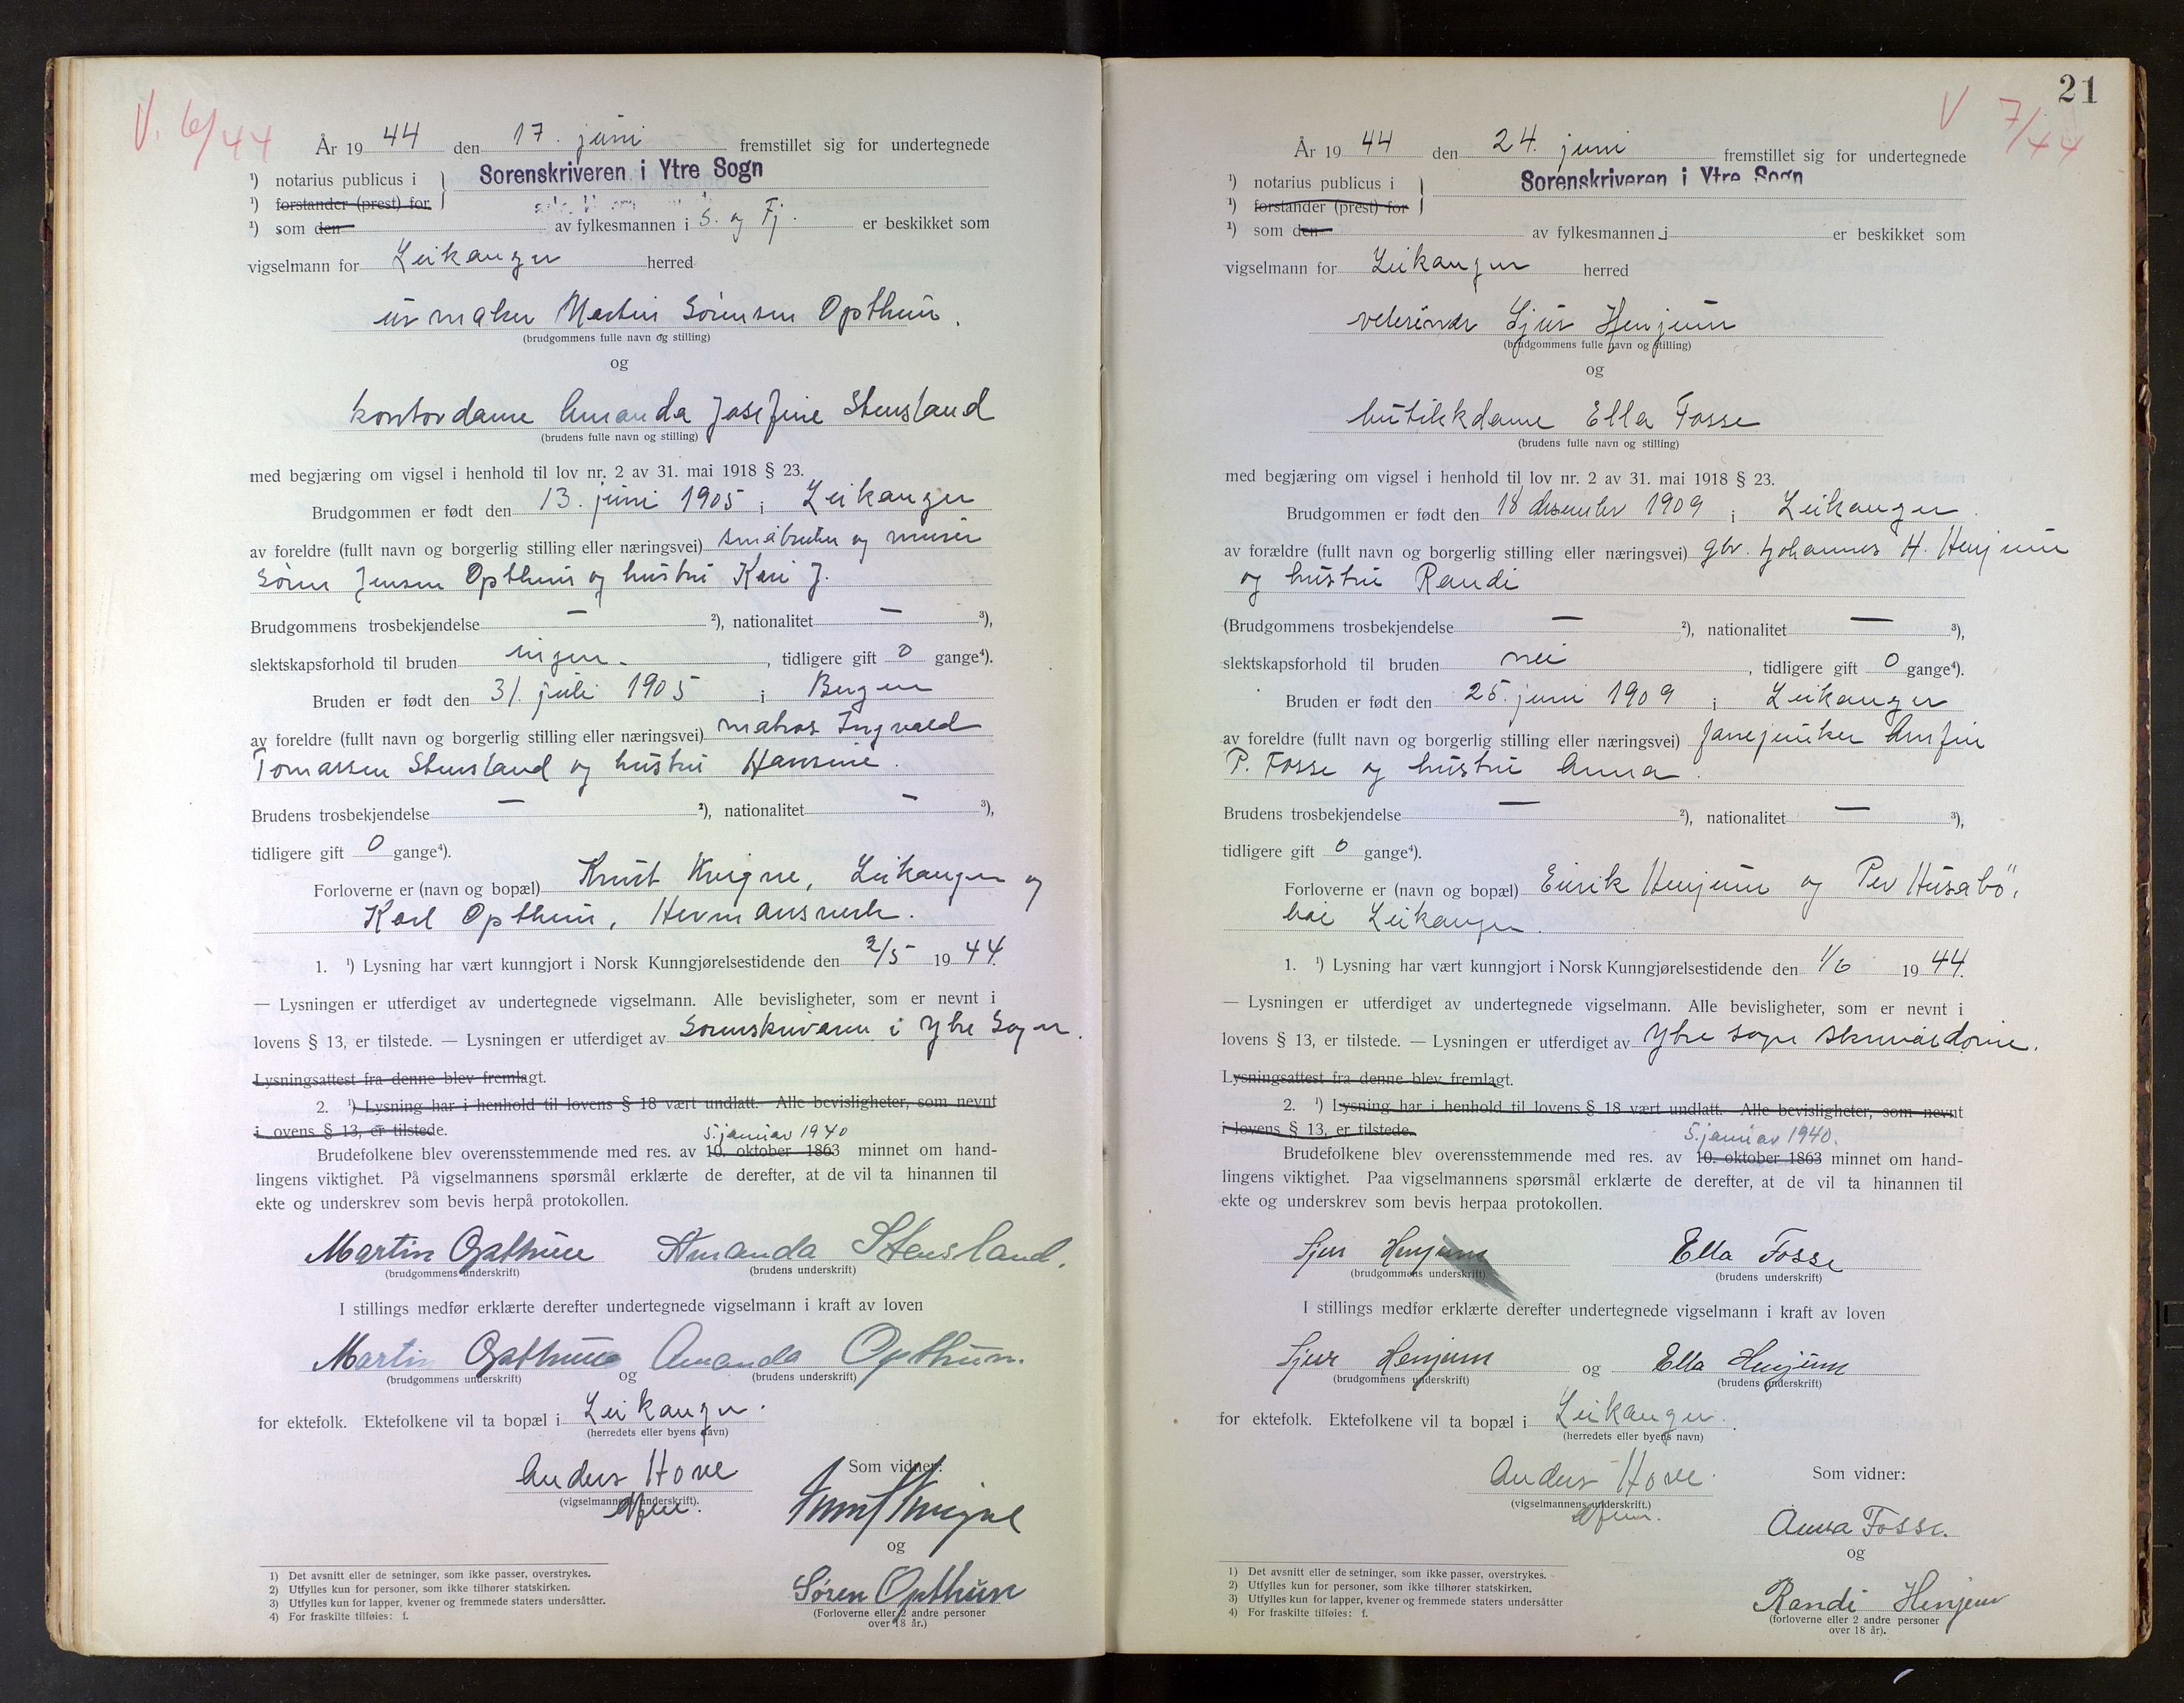 V. 6/44
År 19 44 den 17. juni fremstillet sig for undertegnede
¹) notarius publicus i } Sorenskriveren i Ytre Sogn
¹) forstander (prest) for
¹) som den av fylkesmannen i S. og Fj. er beskikket som
vigselmann for Leikanger herred
urmaker Martin Sørensen Opthun.
(brudgommens fulle navn og stilling)
og
kontordame Amanda Josefine Stensland
(brudens fulle navn og stilling)
med begjæring om vigsel i henhold til lov nr. 2 av 31. mai 1918 § 23.
Brudgommen er født den 13. juni 1905 i Leikanger
av foreldre (fullt navn og borgerlig stilling eller næringsvei) småbruker og murer
Søren Jensen Opthun og hustru Kari J.
Brudgommens trosbekjendelse — ²), nationalitet — ³),
slektskapsforhold til bruden ingen. , tidligere gift 0 gange⁴).
Bruden er født den 31. juli 1905 i Bergen
av foreldre (fullt navn og borgerlig stilling eller næringsvei) matros Ingvald
Tomassen Stensland og hustru Hansine.
Brudens trosbekjendelse — ²), nationalitet — ³),
tidligere gift 0 gange⁴).
Forloverne er (navn og bopæl) Knut Kvigne, Leikanger og
Karl Opthun, Hermansverk.
1. ¹) Lysning har vært kunngjort i Norsk Kunngjørelsestidende den 2/5 19 44.
— Lysningen er utferdiget av undertegnede vigselmann. Alle bevisligheter, som er nevnt i
lovens § 13, er tilstede. — Lysningen er utferdiget av Sorenskrivaren i Ytre Sogn.
Lysningsattest fra denne blev fremlagt.
2. ¹) Lysning har i henhold til lovens § 18 vært undlatt. Alle bevisligheter, som nevnt
i ovens § 13, er tilstede.
5. januar 1940
Brudefolkene blev overensstemmende med res. av 10. oktober 1863 minnet om hand-
lingens viktighet. På vigselmannens spørsmål erklærte de derefter, at de vil ta hinannen til
ekte og underskrev som bevis herpå protokollen.
Martin Opthun Amanda Stensland.
(brudgommens underskrift) (brudens underskrift)
I stillings medfør erklærte derefter undertegnede vigselmann i kraft av loven
Martin Opthun og Amanda Opthun.
(brudgommens underskrift) (brudens underskrift)
for ektefolk. Ektefolkene vil ta bopæl i Leikanger.
(herredets eller byens navn)
Anders Hove Som vidner:
(vigselmannens underskrift).
Knut Kvigne
og
Søren Opthun
(Forloverne eller 2 andre personer
over 18 år.)
1) Det avsnitt eller de setninger, som ikke passer, overstrykes.
2) Utfylles kun for personer, som ikke tilhører statskirken.
3) Utfylles kun for lapper, kvener og fremmede staters undersåtter.
4) For fraskilte tilføies: f.
21
V 7/44
År 19 44 den 24. juni fremstillet sig for undertegnede
¹) notarius publicus i } Sorenskriveren i Ytre Sogn
¹) forstander (prest) for
¹) som den av fylkesmannen i er beskikket som
vigselmann for Leikanger herred
veterinær Sjur Henjum
(brudgommens fulle navn og stilling)
og
butikkdame Ella Fosse
(brudens fulle navn og stilling)
med begjæring om vigsel i henhold til lov nr. 2 av 31. mai 1918 § 23.
Brudgommen er født den 18 desember 1909 i Leikanger.
av forældre (fullt navn og borgerlig stilling eller næringsvei) gbr. Johannes H. Henjum
og hustru Randi
(Brudgommens trosbekjendelse — ²), nationalitet — ³),
slektskapsforhold til bruden nei , tidligere gift 0 gange⁴).
Bruden er født den 25. juni 1909 i Leikanger
av foreldre (fullt navn og borgerlig stilling eller næringsvei) fanejunker Arnfin
P. Fosse og hustru Anna.
Brudens trosbekjendelse — ²), nationalitet — ³),
tidligere gift 0 gange⁴).
Forloverne er (navn og bopæl) Eirik Henjum og Per Husabö,
bae Leikanger.
1. ¹) Lysning har vært kunngjort i Norsk Kunngjørelsestidende den 1/6 19 44.
— Lysningen er utferdiget av undertegnede vigselmann. Alle bevisligheter, som er nevnt i
lovens § 13, er tilstede. — Lysningen er utferdiget av Ytre Sogn skrivardøme.
Lysningsattest fra denne blev fremlagt.
2. ¹) Lysning har i henhold til lovens § 18 vært undlatt. Alle bevisligheter, som nevnt
i lovens § 13, er tilstede.
5. januar 1940.
Brudefolkene blev overensstemmende med res. av 10. oktober 1863 minnet om hand-
lingens viktighet. Paa vigselmannens spørsmål erklærte de derefter, at de vil ta hinannen til
ekte og underskrev som bevis herpaa protokollen.
Sjur Henjum Ella Fosse
(brudgommens underskrift) (brudens underskrift)
I stillings medfør erklærte derefter undertegnede vigselmann i kraft av loven
Sjur Henjum og Ella Henjum
(brudgommens underskrift) (brudens underskrift)
for ektefolk. Ektefolkene vil ta bopæl i Leikanger.
(herredets eller byens navn)
Anders Hove. Som vidner:
(vigselmannens underskrift.)
Anna Fosse.
og
Randi Henjum
(forloverne eller 2 andre personer
over 18 år).
1) Det avsnitt eller de setninger, som ikke passer, overstrykes.
2) Utfylles kun for personer, som ikke tilhører statskirken.
3) Utfylles kun for lapper, kvener og fremmede staters undersåtter
4) For fraskilte tilføies: f.